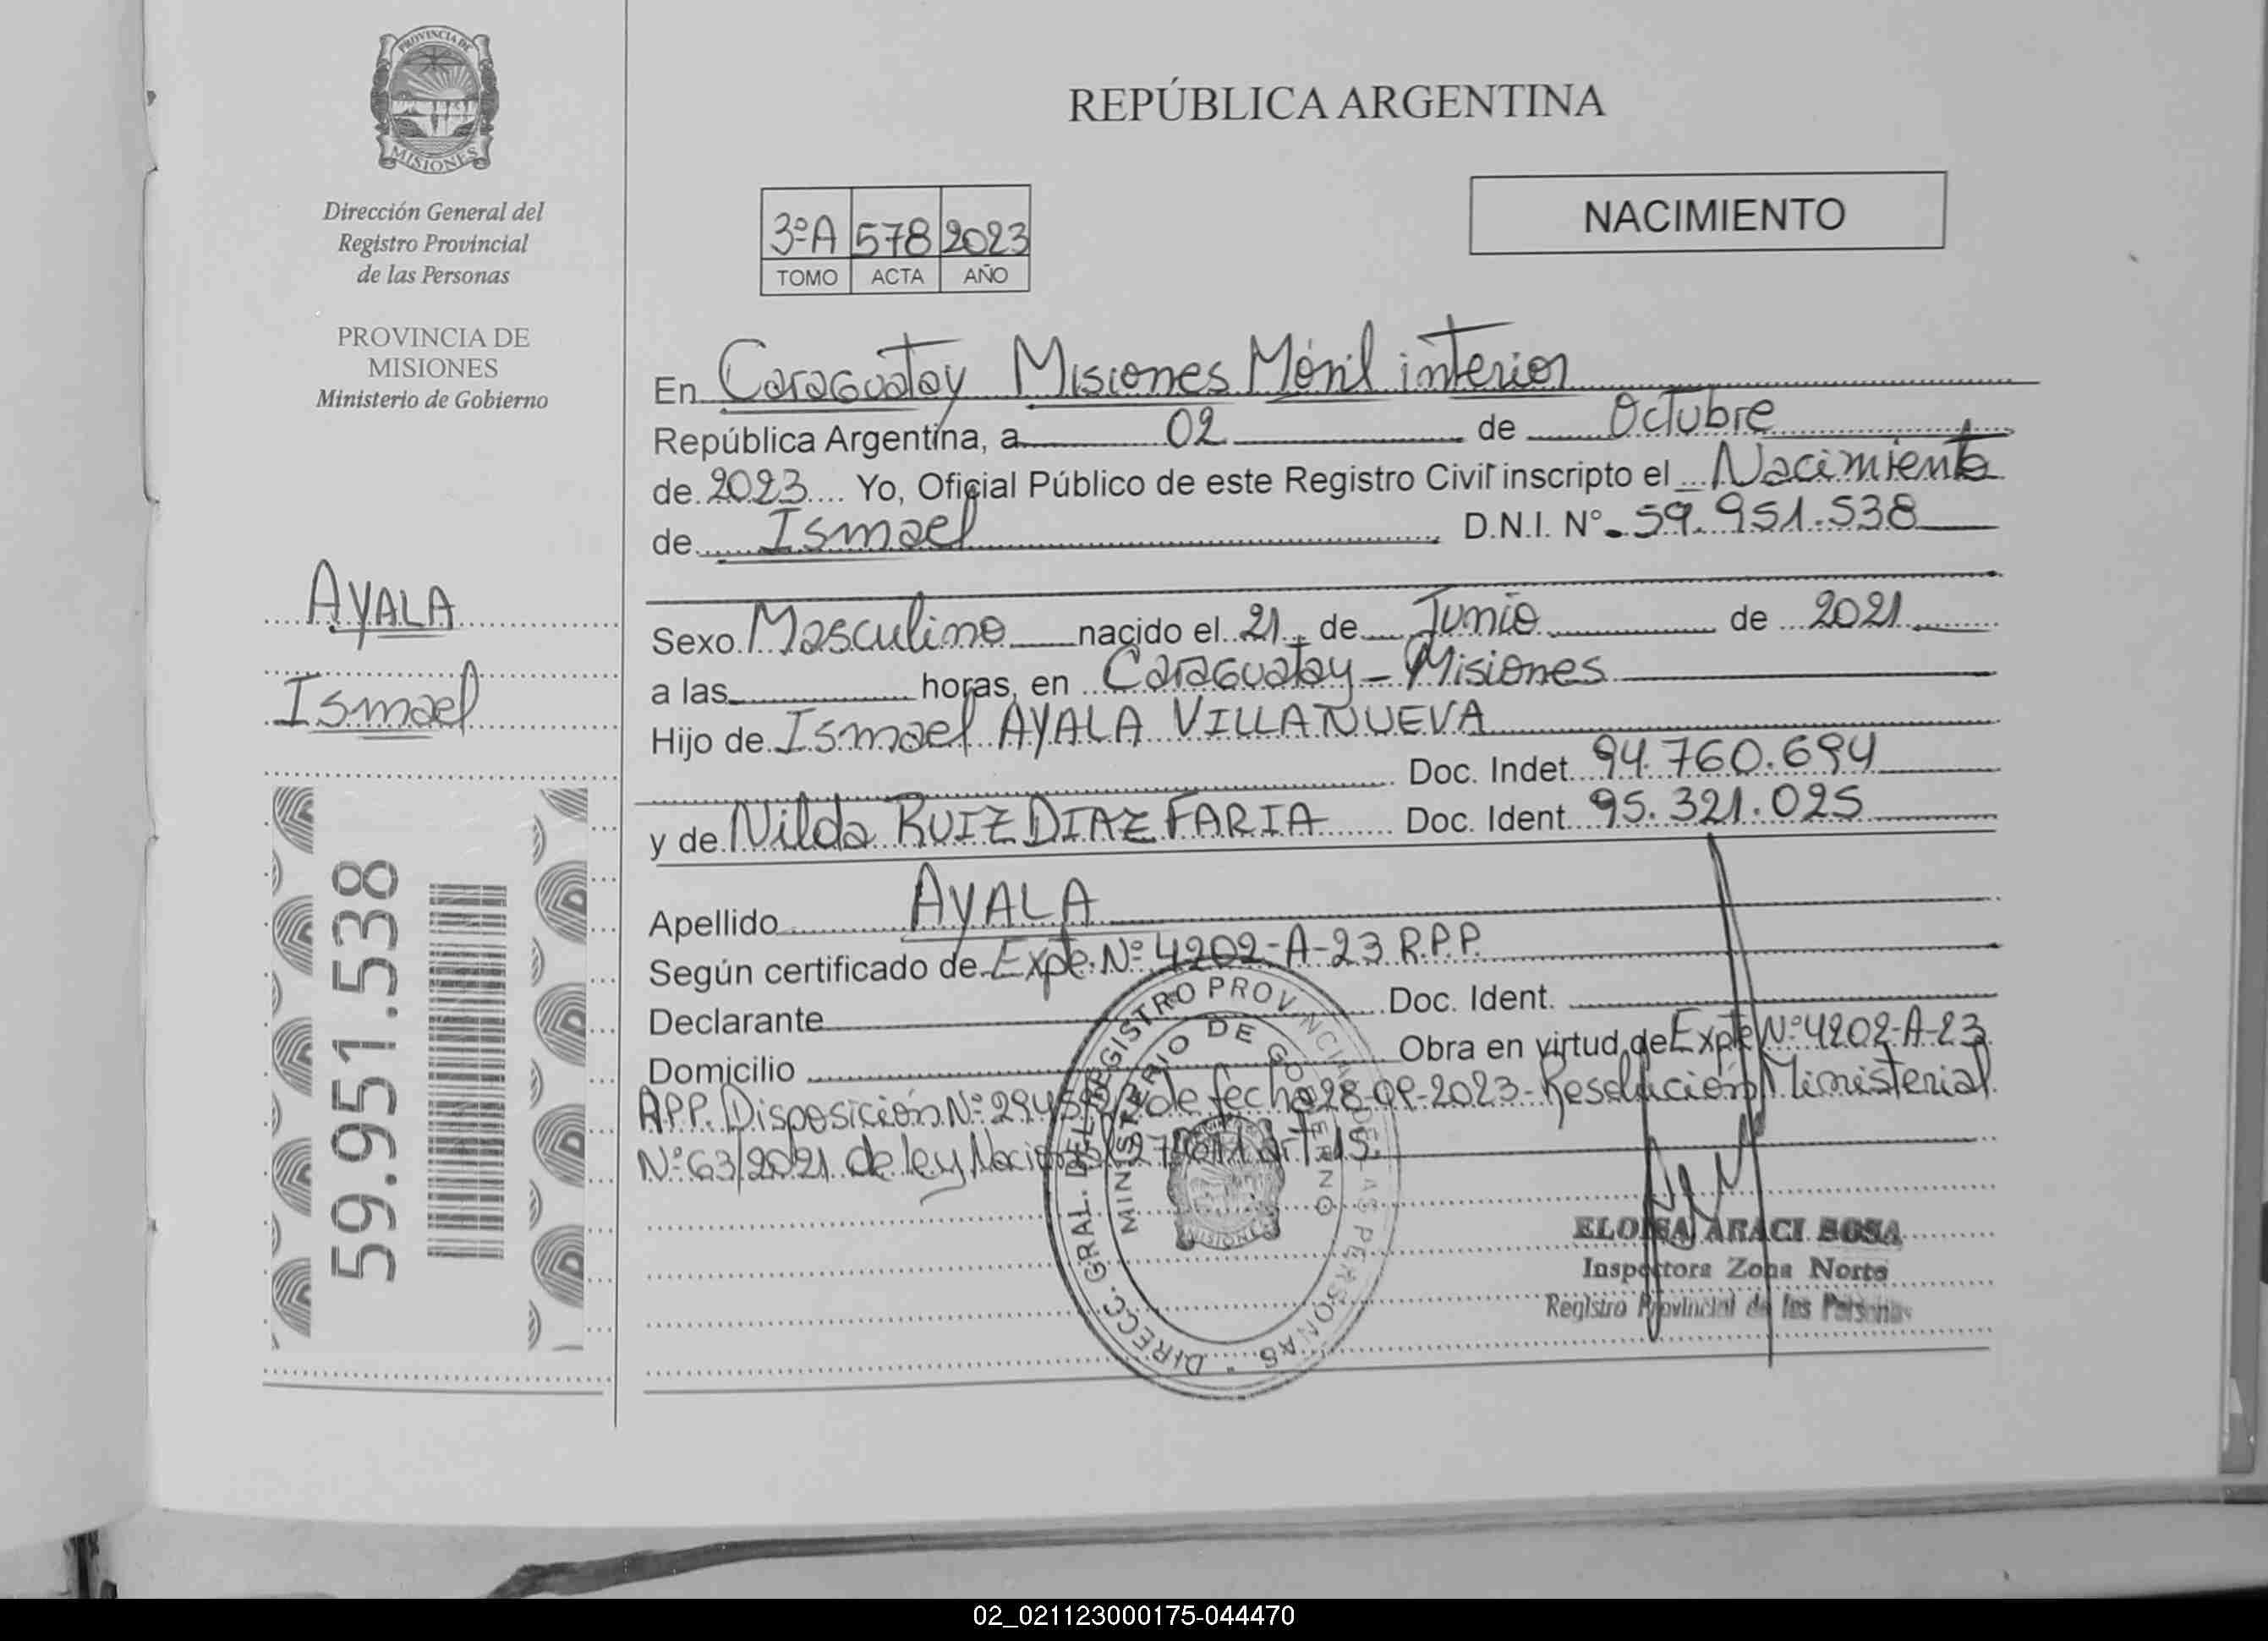 PROVINCIA DE
MISIONES
Dirección General del
Registro Provincial
de las Personas
PROVINCIA DE
MISIONES
Ministerio de Gobierno
AYALA
Ismael
59.951.538
REPÚBLICA ARGENTINA
NACIMIENTO
3ºA 578 2023
TOMO ACTA AÑO
En Caraguatay Misiones Móvil interior
República Argentina, a 02 de Octubre
de 2023 Yo, Oficial Público de este Registro Civil inscripto el Nacimiento
de Ismael D.N.I. Nº 59.951.538
Sexo Masculino nacido el 21 de Junio de 2021
a las horas, en Caraguatay - Misiones
Hijo de Ismael AYALA VILLANUEVA
Doc. Indet. 94.760.694
y de Nilda RUIZ DIAZ FARIA Doc. Ident. 95.321.025
Apellido AYALA
Según certificado de Expte. Nº 4202-A-23 R.P.P.
Declarante Doc. Ident.
Domicilio Obra en virtud de Expte Nº 4202-A-23
Disposición Nº de fecha 28-09-2023 - Resolución Ministerial
Nº 63/2021 de ley Nacional art. 15.
DIRECC. GRAL. DEL REGISTRO PROVINCIAL DE LAS PERSONAS
MINISTERIO DE GOBIERNO
MISIONES
ELOISA ARACI SOSA
Inspectora Zona Norte
Registro Provincial de las Personas
02_021123000175-044470